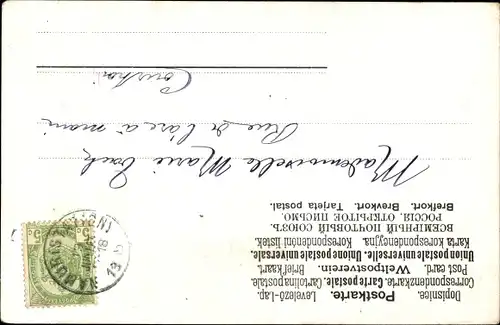 Dopisnice. Postkarte. Levelező-Lap.
Correspondenzkarte. Carte postale. Cartolina postale.
Post card. Weltpostverein. Brief kaart.
Union postale universelle. Unione postale universale.
Karta korespondencyjna. Korespondenční lístek.
ВСЕМІРНЫЙ ПОЧТОВЫЙ СОЮЗЪ.
РОССІЯ. ОТКРЫТОЕ ПИСЬМО.
Brefkort. Brevkort. Tarjeta postal.
Mademoiselle Marie
Rue de l'arc à main
Courtrai
5c 5c